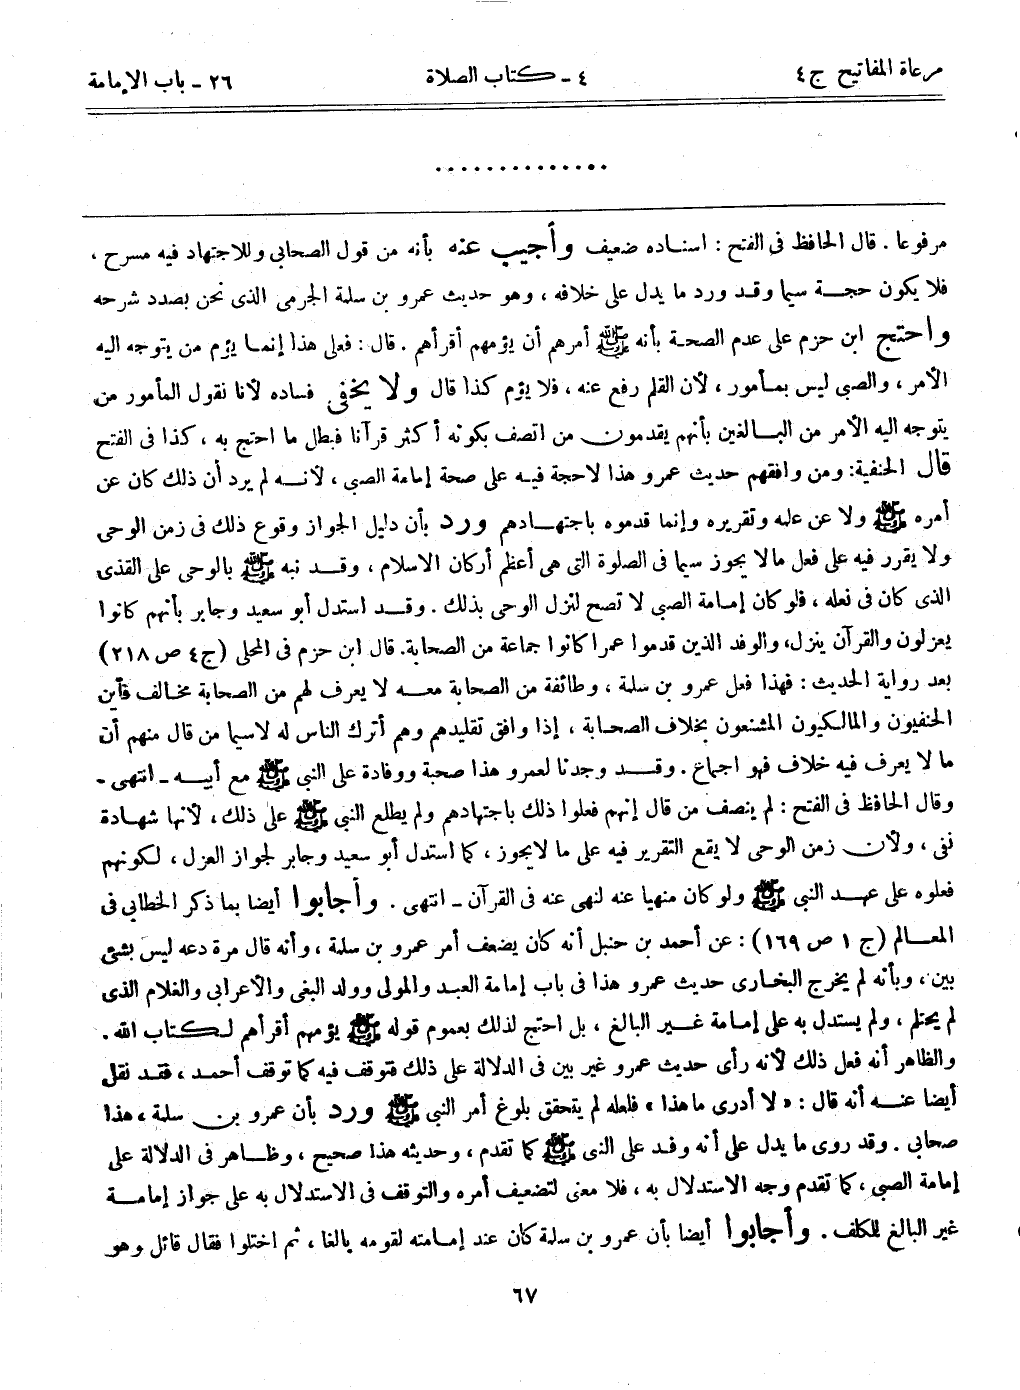 مرعاة المفاتيح ج٤
٤ ـ كتاب الصلاة
٢٦ ـ باب الإمامة
..............
مرفوعا . قال الحافظ فى الفتح : اسناده ضعيف وأجيب عنه بأنه من قول الصحابى وللاجتهاد فيه مسرح ،
فلا يكون حجة سيما وقد ورد ما يدل على خلافه ، وهو حديث عمرو بن سلمة الجرمى الذى نحن بصدد شرحه
واحتج ابن حزم على عدم الصحة بأنه ﷺ أمرهم أن يؤمهم أقرأهم . قال : فعلى هذا إنما يؤم من يتوجه اليه
الأمر ، والصبى ليس بمأمور ، لأن القلم رفع عنه ، فلا يؤم كذا قال ولا يخفى فساده لأنا نقول المأمور من
يتوجه اليه الأمر من البالغين بأنهم يقدمون من اتصف بكونه أكثر قرآنا فبطل ما احتج به ، كذا فى الفتح
قال الحنفية: ومن وافقهم حديث عمرو هذا لاحجة فيه على صحة إمامة الصبى ، لأنه لم يرد أن ذلك كان عن
أمره ﷺ ولا عن علمه وتقريره وإنما قدموه باجتهادهم ورد بأن دليل الجواز وقوع ذلك فى زمن الوحى
ولا يقرر فيه على فعل مالا يجوز سيما فى الصلوة التى هى أعظم أركان الاسلام ، وقد نبه ﷺ بالوحى على القذى
الذى كان فى نعله ، فلو كان إمامة الصبى لا تصح لنزل الوحى بذلك . وقد استدل أبو سعيد وجابر بأنهم كانوا
يعزلون والقرآن ينزل، والوفد الذين قدموا عمرا كانوا جماعة من الصحابة. قال ابن حزم فى المحلى (ج٤ ص ٢١٨)
بعد رواية الحديث : فهذا فعل عمرو بن سلمة ، وطائفة من الصحابة معه لا يعرف لهم من الصحابة مخالف فأين
الحنفيون والمالكيون المشنعون بخلاف الصحابة ، إذا وافق تقليدهم وهم أترك الناس له لاسيما من قال منهم أن
ما لا يعرف فيه خلاف فهو اجماع . وقد وجدنا لعمرو هذا صحبة ووفادة على النبى ﷺ مع أبيه ـ انتهى ـ
وقال الحافظ فى الفتح : لم ينصف من قال إنهم فعلوا ذلك باجتهادهم ولم يطلع النبى ﷺ على ذلك، لأنها شهادة
نفى ، ولأن زمن الوحى لا يقع التقرير فيه على ما لايجوز ، كما استدل أبو سعيد وجابر لجواز العزل ، لكونهم
فعلوه على عهد النبى ﷺ ولو كان منهيا عنه لنهى عنه فى القرآن ـ انتهى . وأجابوا أيضا بما ذكر الخطابى فى
المعالم (ج ١ ص ١٦٩) : عن أحمد بن حنبل أنه كان يضعف أمر عمرو بن سلمة ، وأنه قال مرة دعه ليس بشئ
بين ، وبأنه لم يخرج البخارى حديث عمرو هذا فى باب إمامة العبد والمولى وولد البغى والأعرابى والغلام الذى
لم يحتلم ، ولم يستدل به على إمامة غير البالغ ، بل احتج لذلك بعموم قوله ﷺ يؤمهم أقرأهم لكتاب الله .
والظاهر أنه فعل ذلك لأنه رأى حديث عمرو غير بين فى الدلالة على ذلك فتوقف فيه كما توقف أحمد ، فقد نقل
أيضا عنه أنه قال : « لا أدرى ما هذا » فلعله لم يتحقق بلوغ أمر النبى ﷺ ورد بأن عمرو بن سلمة ، هذا
صحابى . وقد روى ما يدل على أنه وفد على النبى ﷺ كما تقدم ، وحديثه هذا صحيح ، وظاهر فى الدلالة على
إمامة الصبى ، كما تقدم وجه الاستدلال به ، فلا معنى لتضعيف أمره والتوقف فى الاستدلال به على جواز إمامة
غير البالغ للمكلف . وأجابوا أيضا بأن عمرو بن سلمة كان عند إمامته لقومه بالغا ، ثم اختلوا فقال قائل وهو
٦٧